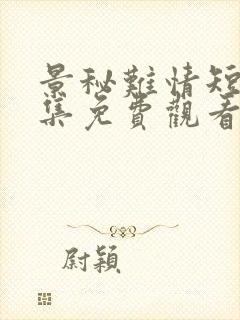 景秘難情短
集免費觀看
尉穎